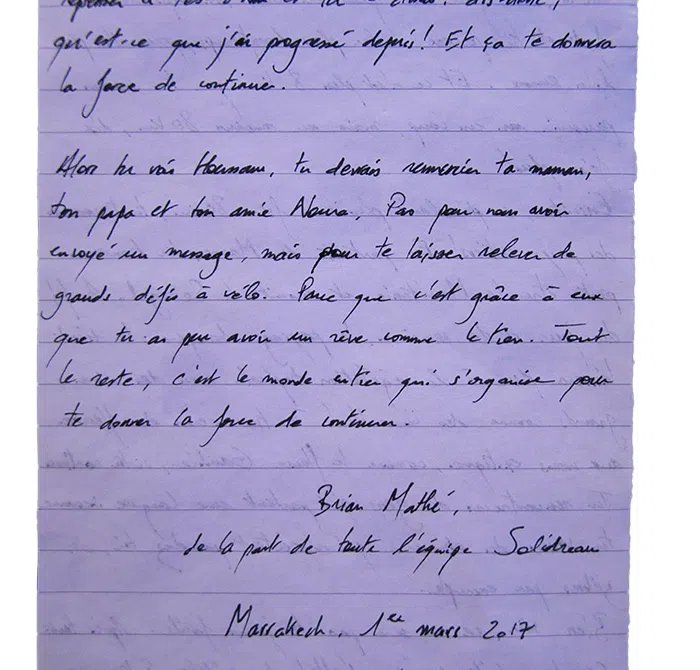 repenser à tes
qu'est-ce que j'ai progressé depuis! Et ça te donnera
la force de continuer.
Alors tu vois Houssam, tu devrais remercier ta maman,
ton papa et ton amie Noura. Pas pour nous avoir
envoyé un message, mais pour te laisser relever de
grands défis à vélo. Parce que c'est grâce à eux
que tu as pu avoir un rêve comme le tien. Tout
le reste, c'est le monde entier qui s'organise pour
te donner la force de continuer.
Brian Mathé,
de la part de toute l'équipe Solidream
Marrakech, 1er mars 2017